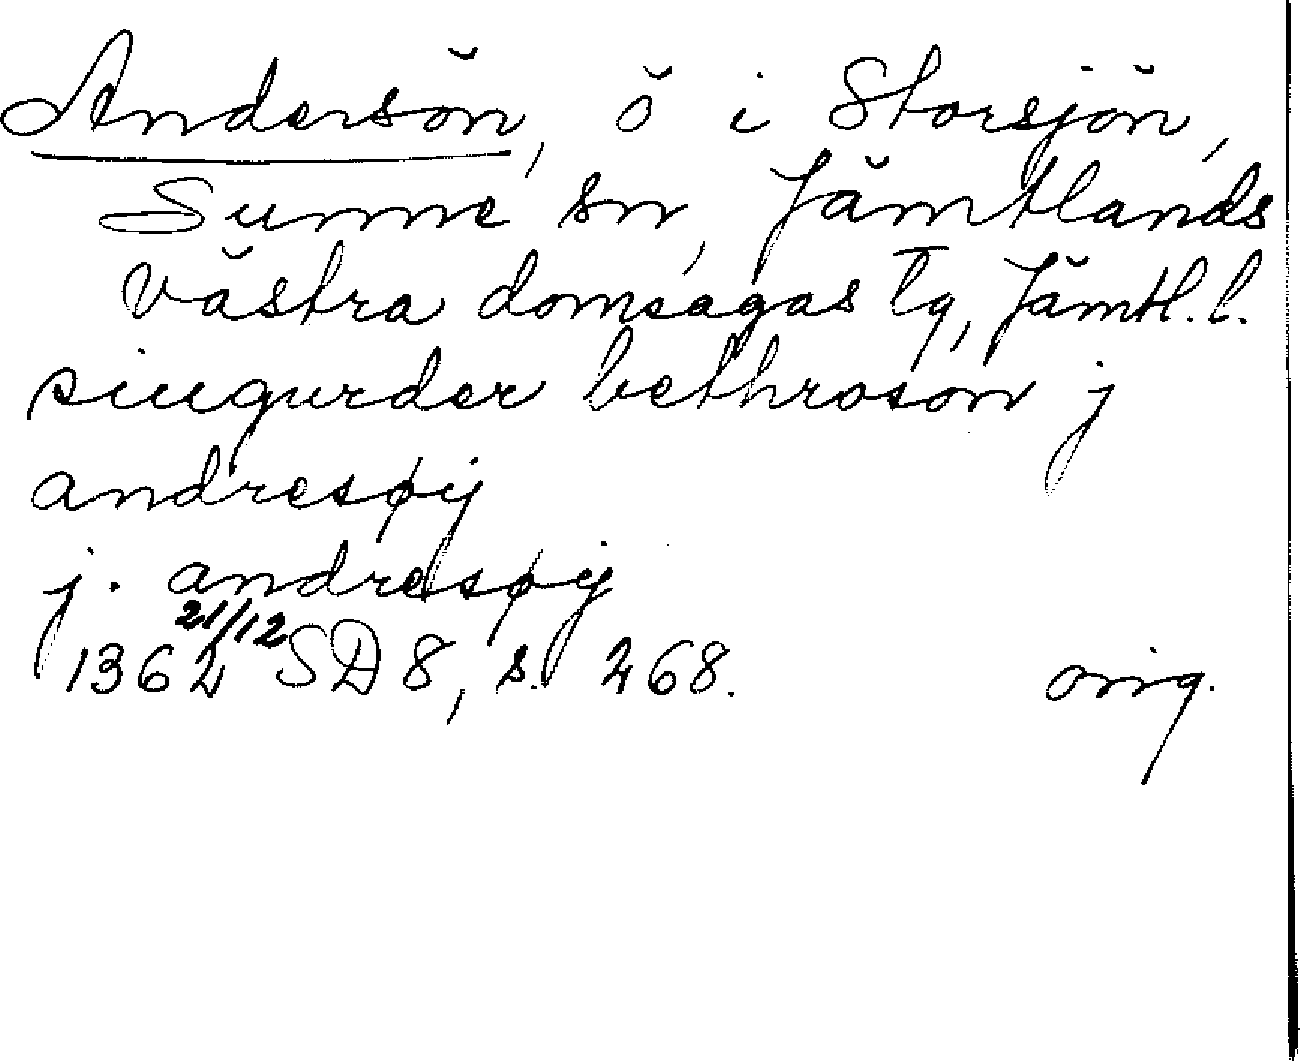 Andersön, ö i Storsjön,
Sunne sn, Jämtlands
västra domsagas tg, Jämtl. l.
siugurder bethroson j
andresøy
j. andresøy
1362 21/12 SD 8, s. 268. orig.